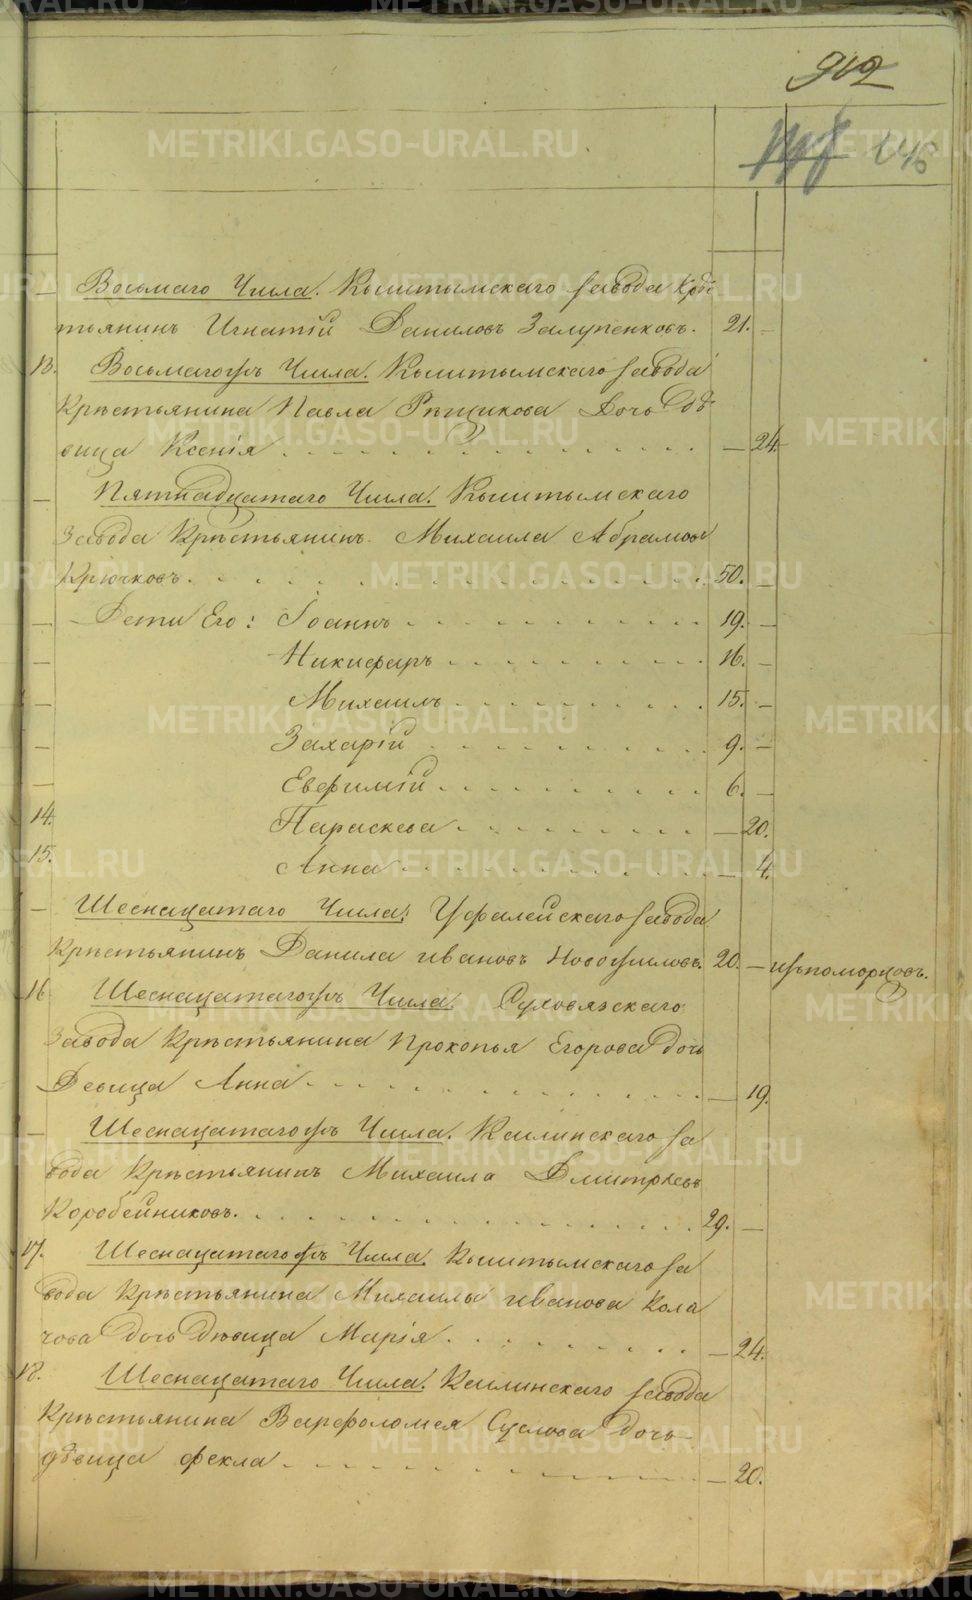 912
146
Восьмаго Числа. Кыштымскаго завода Крѣс
тьянинъ Игнатій Даниловъ Залупенковъ. 21. –
13. Восьмагожъ Числа. Кыштымскаго завода
Крѣстьянина Павла Рѣщикова Дочь Дѣ
вица Ксенія . . . – 24.
– Пятнадцатаго Числа. Кыштымскаго
Завода Крѣстьянинъ Михаила Абрамовъ
Крючковъ. . . . 50. –
– Дети Его: Іоаннъ . . . 19. –
– Никифаръ . . . 16. –
– Михаилъ . . . 15. –
– Захарій . . . 9. –
– Евфимій . . . 6. –
14. Параскева . . . – 20.
15. Анна . . . – 4.
– Шеснацатаго Числа. Уфалейскаго завода
Крѣстьянинъ Данила ивановъ Новожиловъ. 20. – изъпоморцовъ.
16 Шеснацатагожъ Числа. Суховязскаго
Завода Крѣстьянина Прокопья Егорова дочь
Девица Анна . . . – 19.
– Шеснацатагожъ Числа. Каслинскаго за
вода Крѣстьянинъ Михаила Дмитрѣевъ
Коробейниковъ. . . . 29. –
17. Шеснацатагожъ Числа. Кыштымскаго за
вода Крѣстьянина Михаилы иванова Кола
чова дочь дѣвица Марія . . . – 24.
18. Шеснацатаго Числа. Каслинскаго завода
Крѣстьянина Варфоломея Суслова дочь
дѣвица фекла . . . – 20.
METRIKI.GASO-URAL.RU